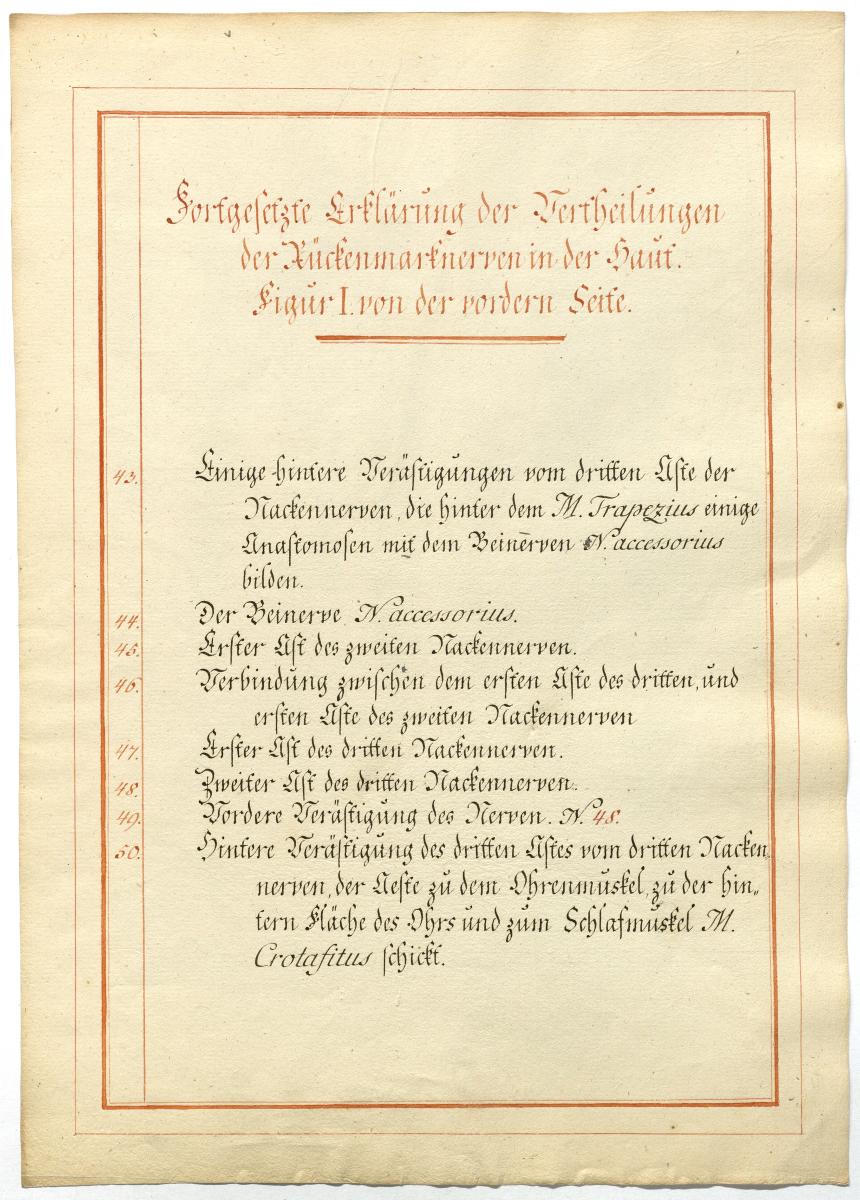 Fortgesetzte Erklärung der Vertheilungen
der Rückenmarknerven in der Haut.
Figur I. von der vordern Seite.
43. Einige hintere Verästigungen vom dritten Aste der
Nackennerven, die hinter dem M. Trapezius einige
Anastomosen mit dem Beinerven N. accessorius
bilden.
44. Der Beinerve N. accessorius.
45. Erster Ast des zweiten Nackennerven.
46. Verbindung zwischen dem ersten Aste des dritten, und
ersten Aste des zweiten Nackennerven
47. Erster Ast des dritten Nackennerven.
48. Zweiter Ast des dritten Nackennerven.
49. Vordere Verästigung des Nerven. N. 48.
50. Hintere Verästigung des dritten Astes vom dritten Nacken„
nerven, der Aeste zu dem Ohrenmuskel, zu der hin„
tern Fläche des Ohrs und zum Schlafmuskel M.
Crotafitus schickt.